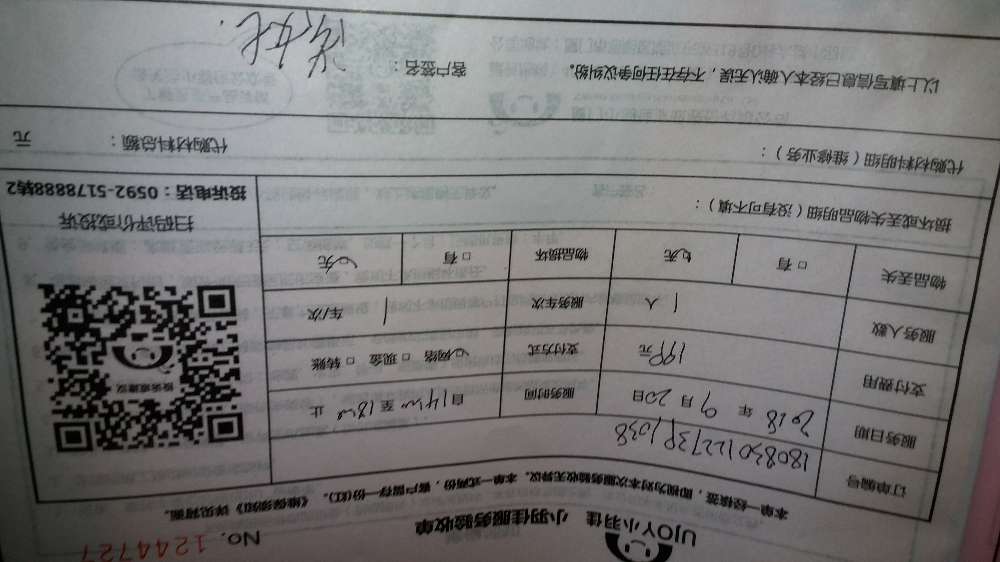 UJOY小羽佳 小羽佳服务验收单
No. 1244727
本单一经核签，即视为对本次服务验收无异议。本单一式两份，客户留存一份(红)。《维保须知》详见背面。
订单编号
服务日期 2018 年 9 月 20 日 服务时间 自 14:00 至 18:00 止
支付费用 199 元 支付方式 ☑网络 □现金 □转账
服务人数 1 人 服务车次 1 车/次
物品丢失 □有 ☑无 物品损坏 □有 ☑无
投诉或建议
扫码评价或投诉
投诉电话：0592-5178888转2
损坏或丢失物品明细（没有可不填）：
代购材料明细（维修业务）： 代购材料总额： 元
以上填写信息已经本人确认无误，不存在任何争议纠纷。 客户签名：